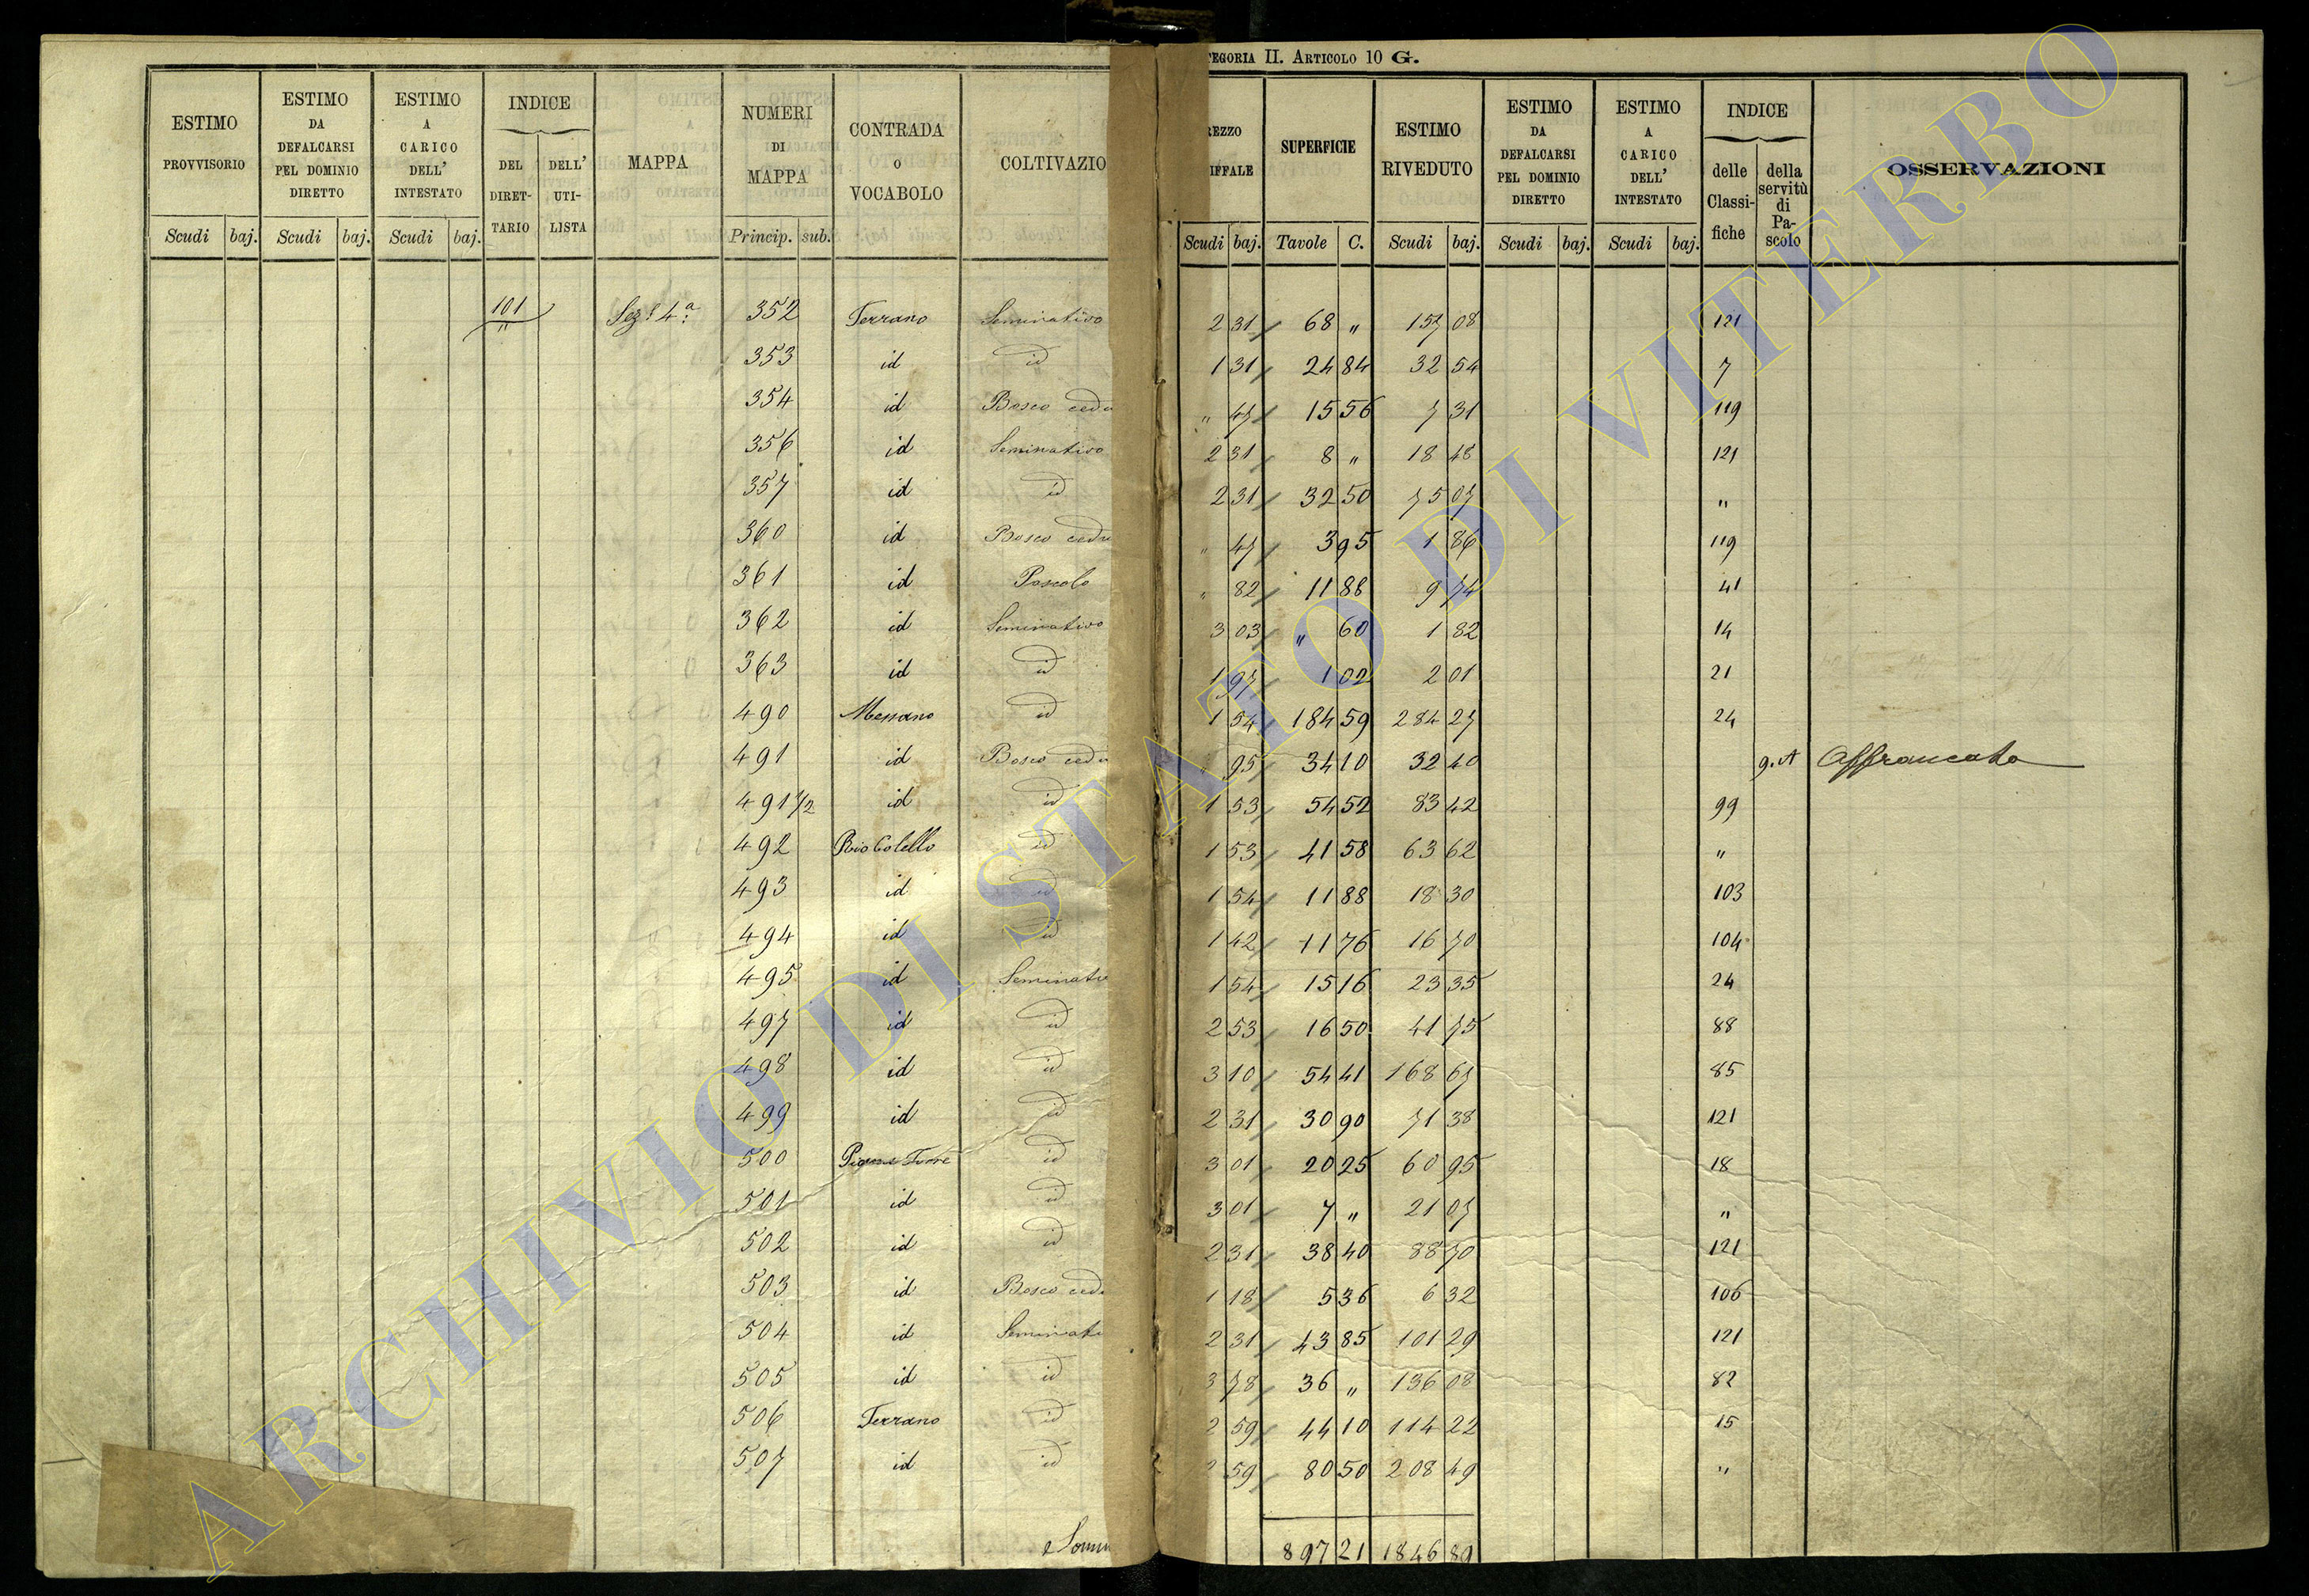 TEGORIA II. ARTICOLO 10 G.
ESTIMO PROVVISORIO
ESTIMO DA DEFALCARSI PEL DOMINIO DIRETTO
ESTIMO A CARICO DELL' INTESTATO
INDICE
DEL DIRET-TARIO
DELL' UTI-LISTA
MAPPA
NUMERI DI MAPPA
CONTRADA O VOCABOLO
COLTIVAZIO
REZZO IFFALE
SUPERFICIE
ESTIMO RIVEDUTO
ESTIMO DA DEFALCARSI PEL DOMINIO DIRETTO
ESTIMO A CARICO DELL' INTESTATO
INDICE
delle Classi-fiche
della servitù di Pa-scolo
OSSERVAZIONI
Scudi baj. Scudi baj. Scudi baj. Princip. sub. Scudi baj. Tavole C. Scudi baj. Scudi baj. Scudi baj.
101 " Sez.e 4a 352 Terrano Seminativo 2 31 68 " 157 08 121
353 id id 1 31 24 84 32 54 7
354 id Bosco cedu " 47 15 56 7 31 119
356 id Seminativo 2 31 8 " 18 48 121
357 id id 2 31 32 50 75 07 "
360 id Bosco cedu " 47 3 95 1 86 119
361 id Pascolo " 82 11 88 9 74 41
362 id Seminativo 3 03 " 60 1 82 14
363 id id 1 97 1 02 2 01 21
490 Messano id 1 54 184 59 284 27 24
491 id Bosco cedu " 95 34 10 32 40 g. A Affrancata
491 1/2 id id 1 53 54 52 83 42 99
492 Rio Colello id 1 53 41 58 63 62 "
493 id id 1 54 11 88 18 30 103
494 id id 1 42 11 76 16 70 104
495 id Seminativ 1 54 15 16 23 35 24
497 id id 2 53 16 50 41 75 88
498 id id 3 10 54 41 168 67 85
499 id id 2 31 30 90 71 38 121
500 id 3 01 20 25 60 95 18
501 id id 3 01 7 " 21 07 "
502 id id 2 31 38 40 88 70 121
503 id Bosco cedu 1 18 5 36 6 32 106
504 id Seminati 2 31 43 85 101 29 121
505 id id 3 78 36 " 136 08 82
506 Terrano id 2 59 44 10 114 22 15
507 id id 59 80 50 208 49 "
Somm 897 21 1846 89
ARCHIVIO DI STATO DI VITERBO